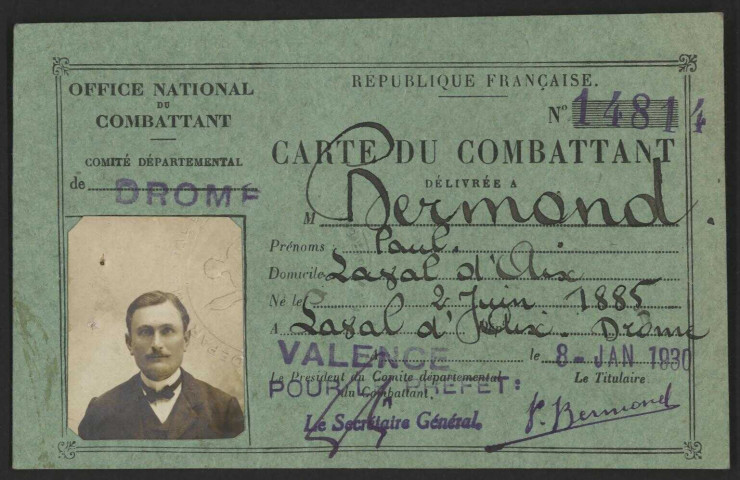 OFFICE NATIONAL
DU
COMBATTANT
COMITÉ DÉPARTEMENTAL
de DROME
RÉPUBLIQUE FRANÇAISE.
N° 14814
CARTE DU COMBATTANT
DÉLIVRÉE A
M Bermond.
Prénoms Paul.
Domicile Laval d'Aix
Né le 2 Juin 1885
A Laval d'Aix. Drôme
VALENCE le 8-JAN 1930
Le Président du Comité départemental
du Combattant,
POUR LE PREFET:
Le Secrétaire Général,
Le Titulaire
P. Bermond